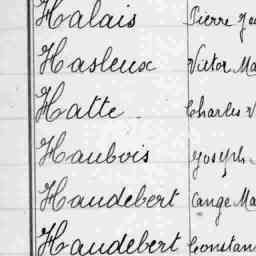 Halais Pierre
Hasleux Victor Ma
Hatte Charles V
Haubois Joseph
Haudebert Ange Ma
Haudebert Constan